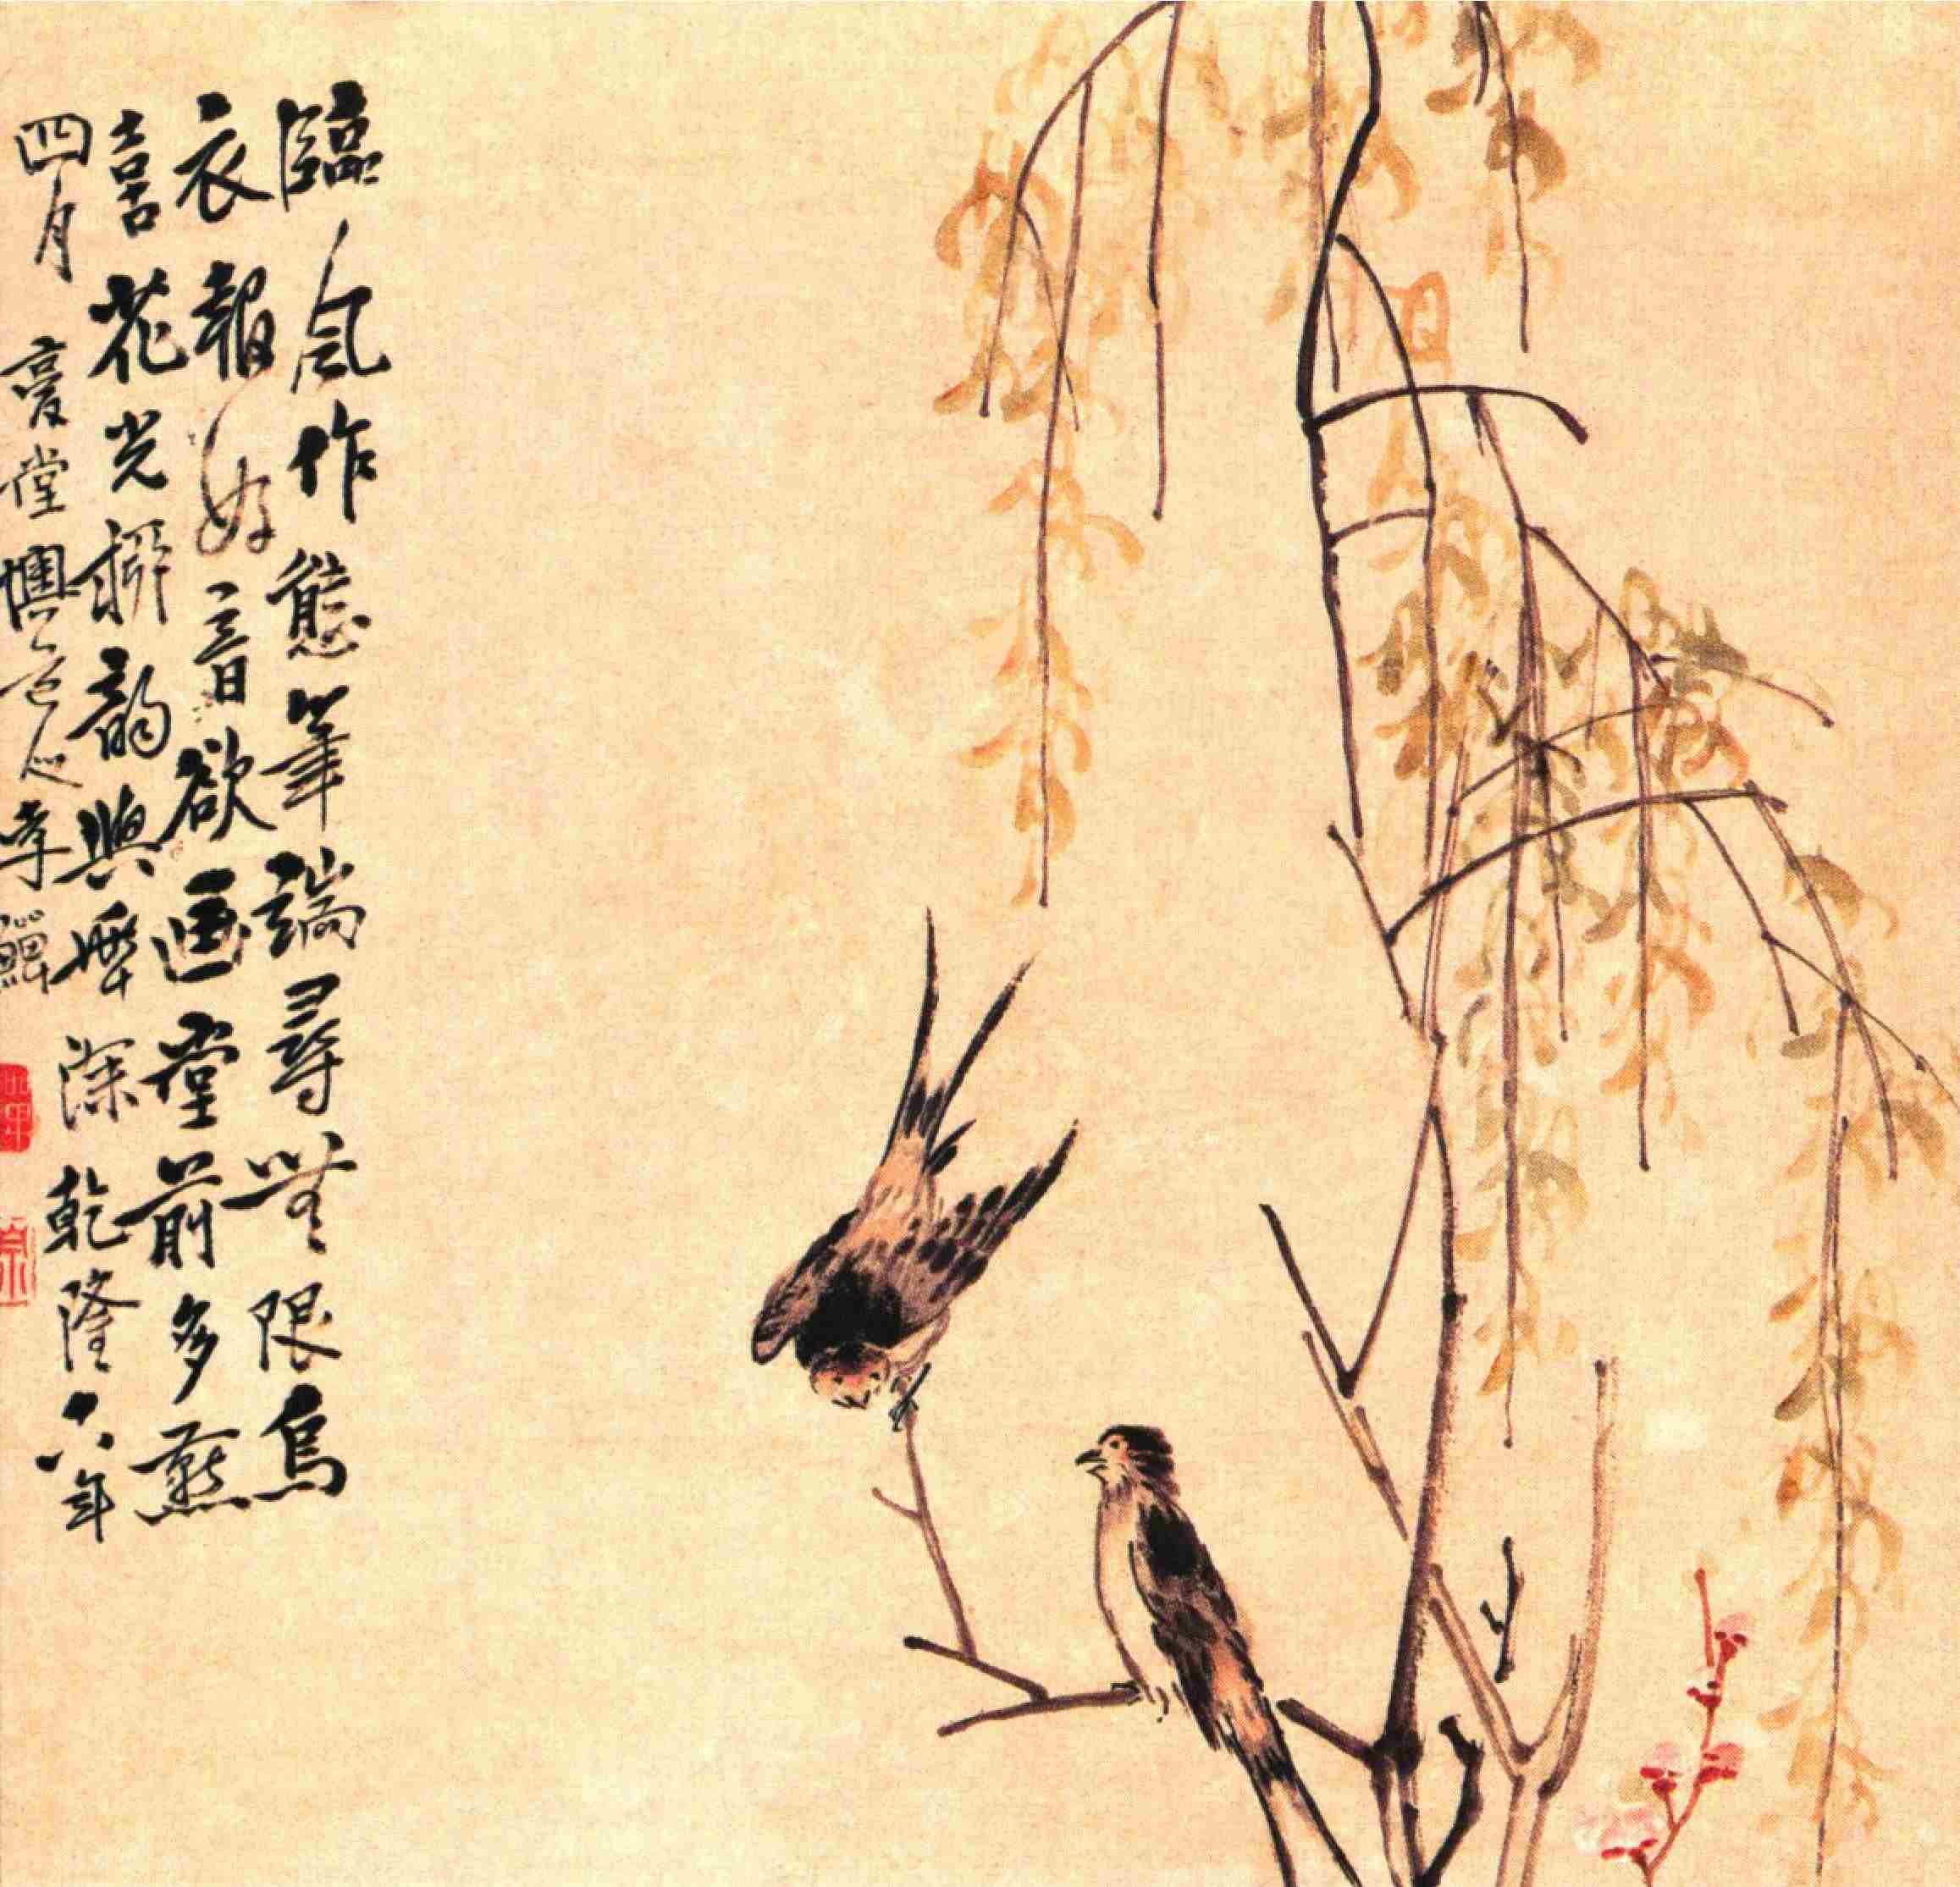 臨風作態筆端尋無限烏
衣報好音欲画堂前多燕
喜花光柳韵興無深乾隆十八年
四月 薆堂懊道人李鱓